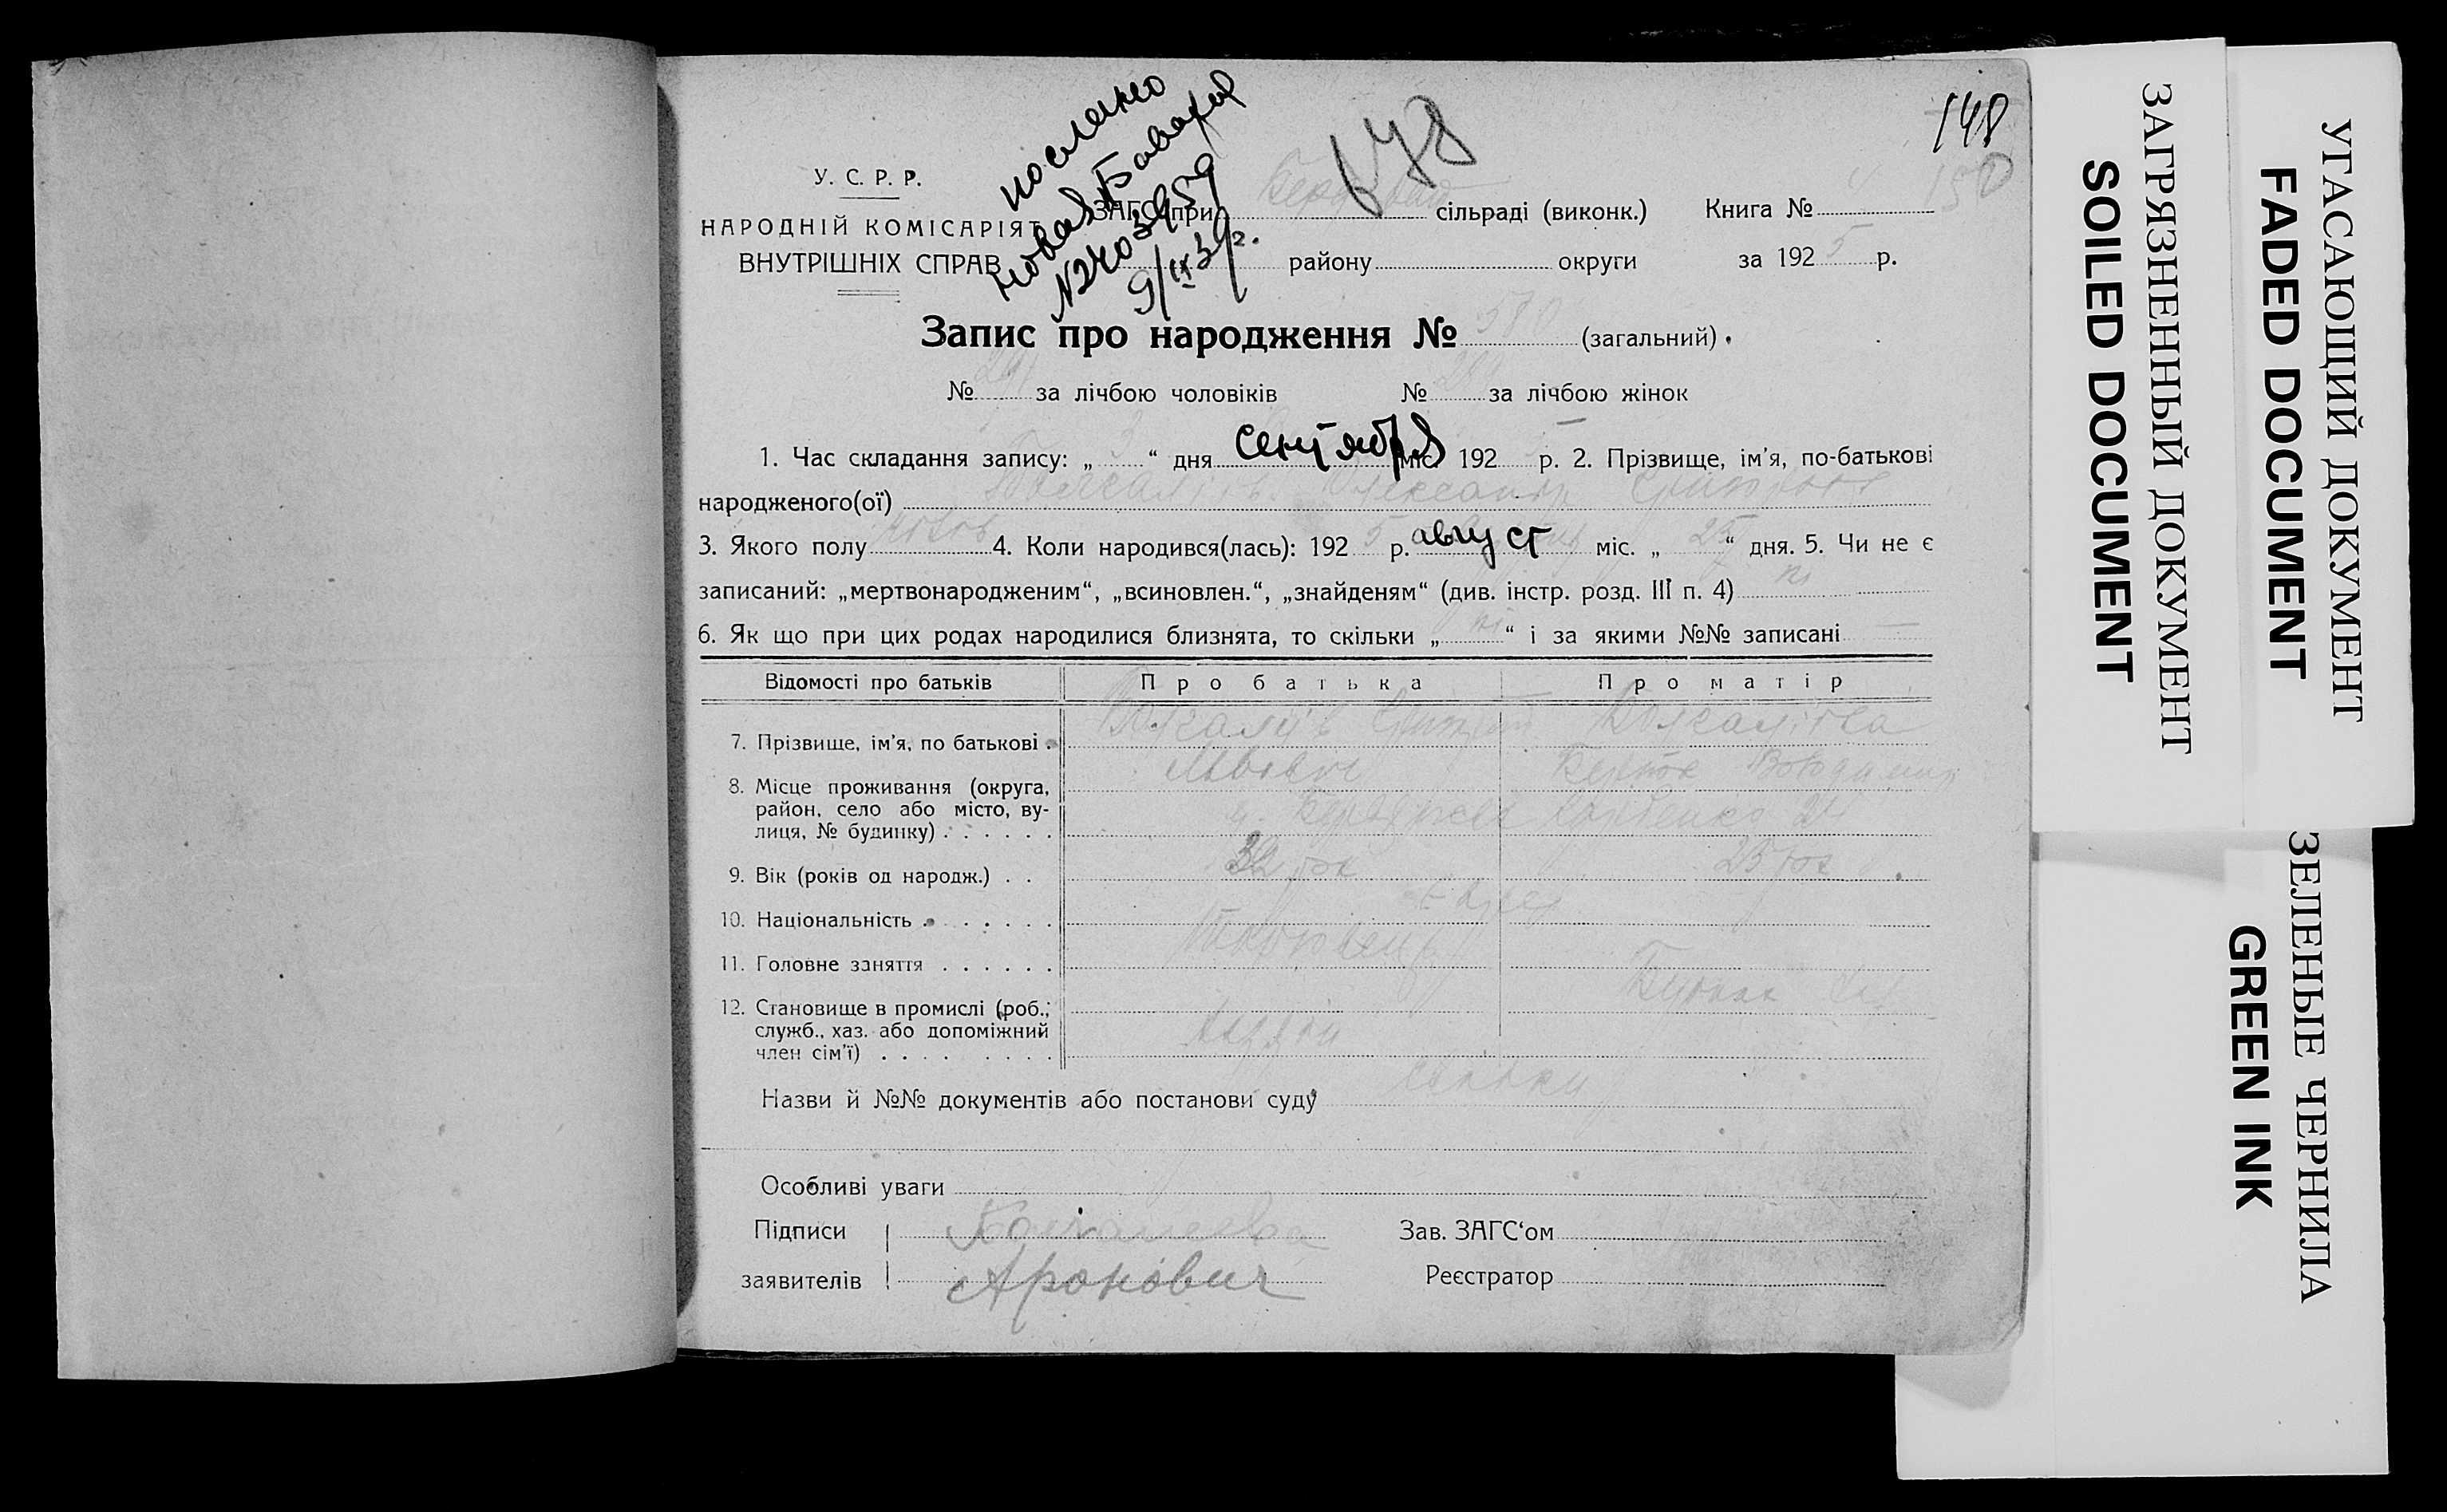 148
150
послано
Новая Бавария
N240 3959
9/IX 39г.
У. С. Р. Р.
НАРОДНІЙ КОМІСАРІЯТ
ВНУТРІШНІХ СПРАВ
ЗАГС при сільраді (виконк.) Книга №
району округи за 1925 р.
Запис про народження № 580 (загальний)
№ 291 за лічбою чоловіків № за лічбою жінок
1. Час складання запису: „ 3 “ дня сентября міс. 192 р. 2. Прізвище, ім’я, по-батькові
народженого(ої)
3. Якого полу 4. Коли народився(лась): 1925 р. август міс. „ 25 “ дня. 5. Чи не є
записаний: „мертвонародженим“, „всиновлен.“, „знайденям“ (див. інстр. розд. III п. 4) ні
6. Як що при цих родах народилися близнята, то скільки „ ні “ і за якими №№ записані —
Відомості про батьків Про батька Про матір
7. Прізвище, ім’я, по батькові
8. Місце проживання (округа,
район, село або місто, ву-
лиця, № будинку) . . . . . .
9. Вік (років од народж.) . . 32 рок 25 рок
10. Національність . . . . . . .
11. Головне заняття . . . . . .
12. Становище в промислі (роб.,
служб., хаз. або допоміжний
член сім’ї) . . . . . . . .
Назви й №№ документів або постанови суду
Особливі уваги
Підписи Зав. ЗАГС‘ом
заявителів Аронович Реєстратор
ЗАГРЯЗНЕННЫЙ ДОКУМЕНТ
SOILED DOCUMENT
УГАСАЮЩИЙ ДОКУМЕНТ
FADED DOCUMENT
ЗЕЛЕНЫЕ ЧЕРНИЛА
GREEN INK